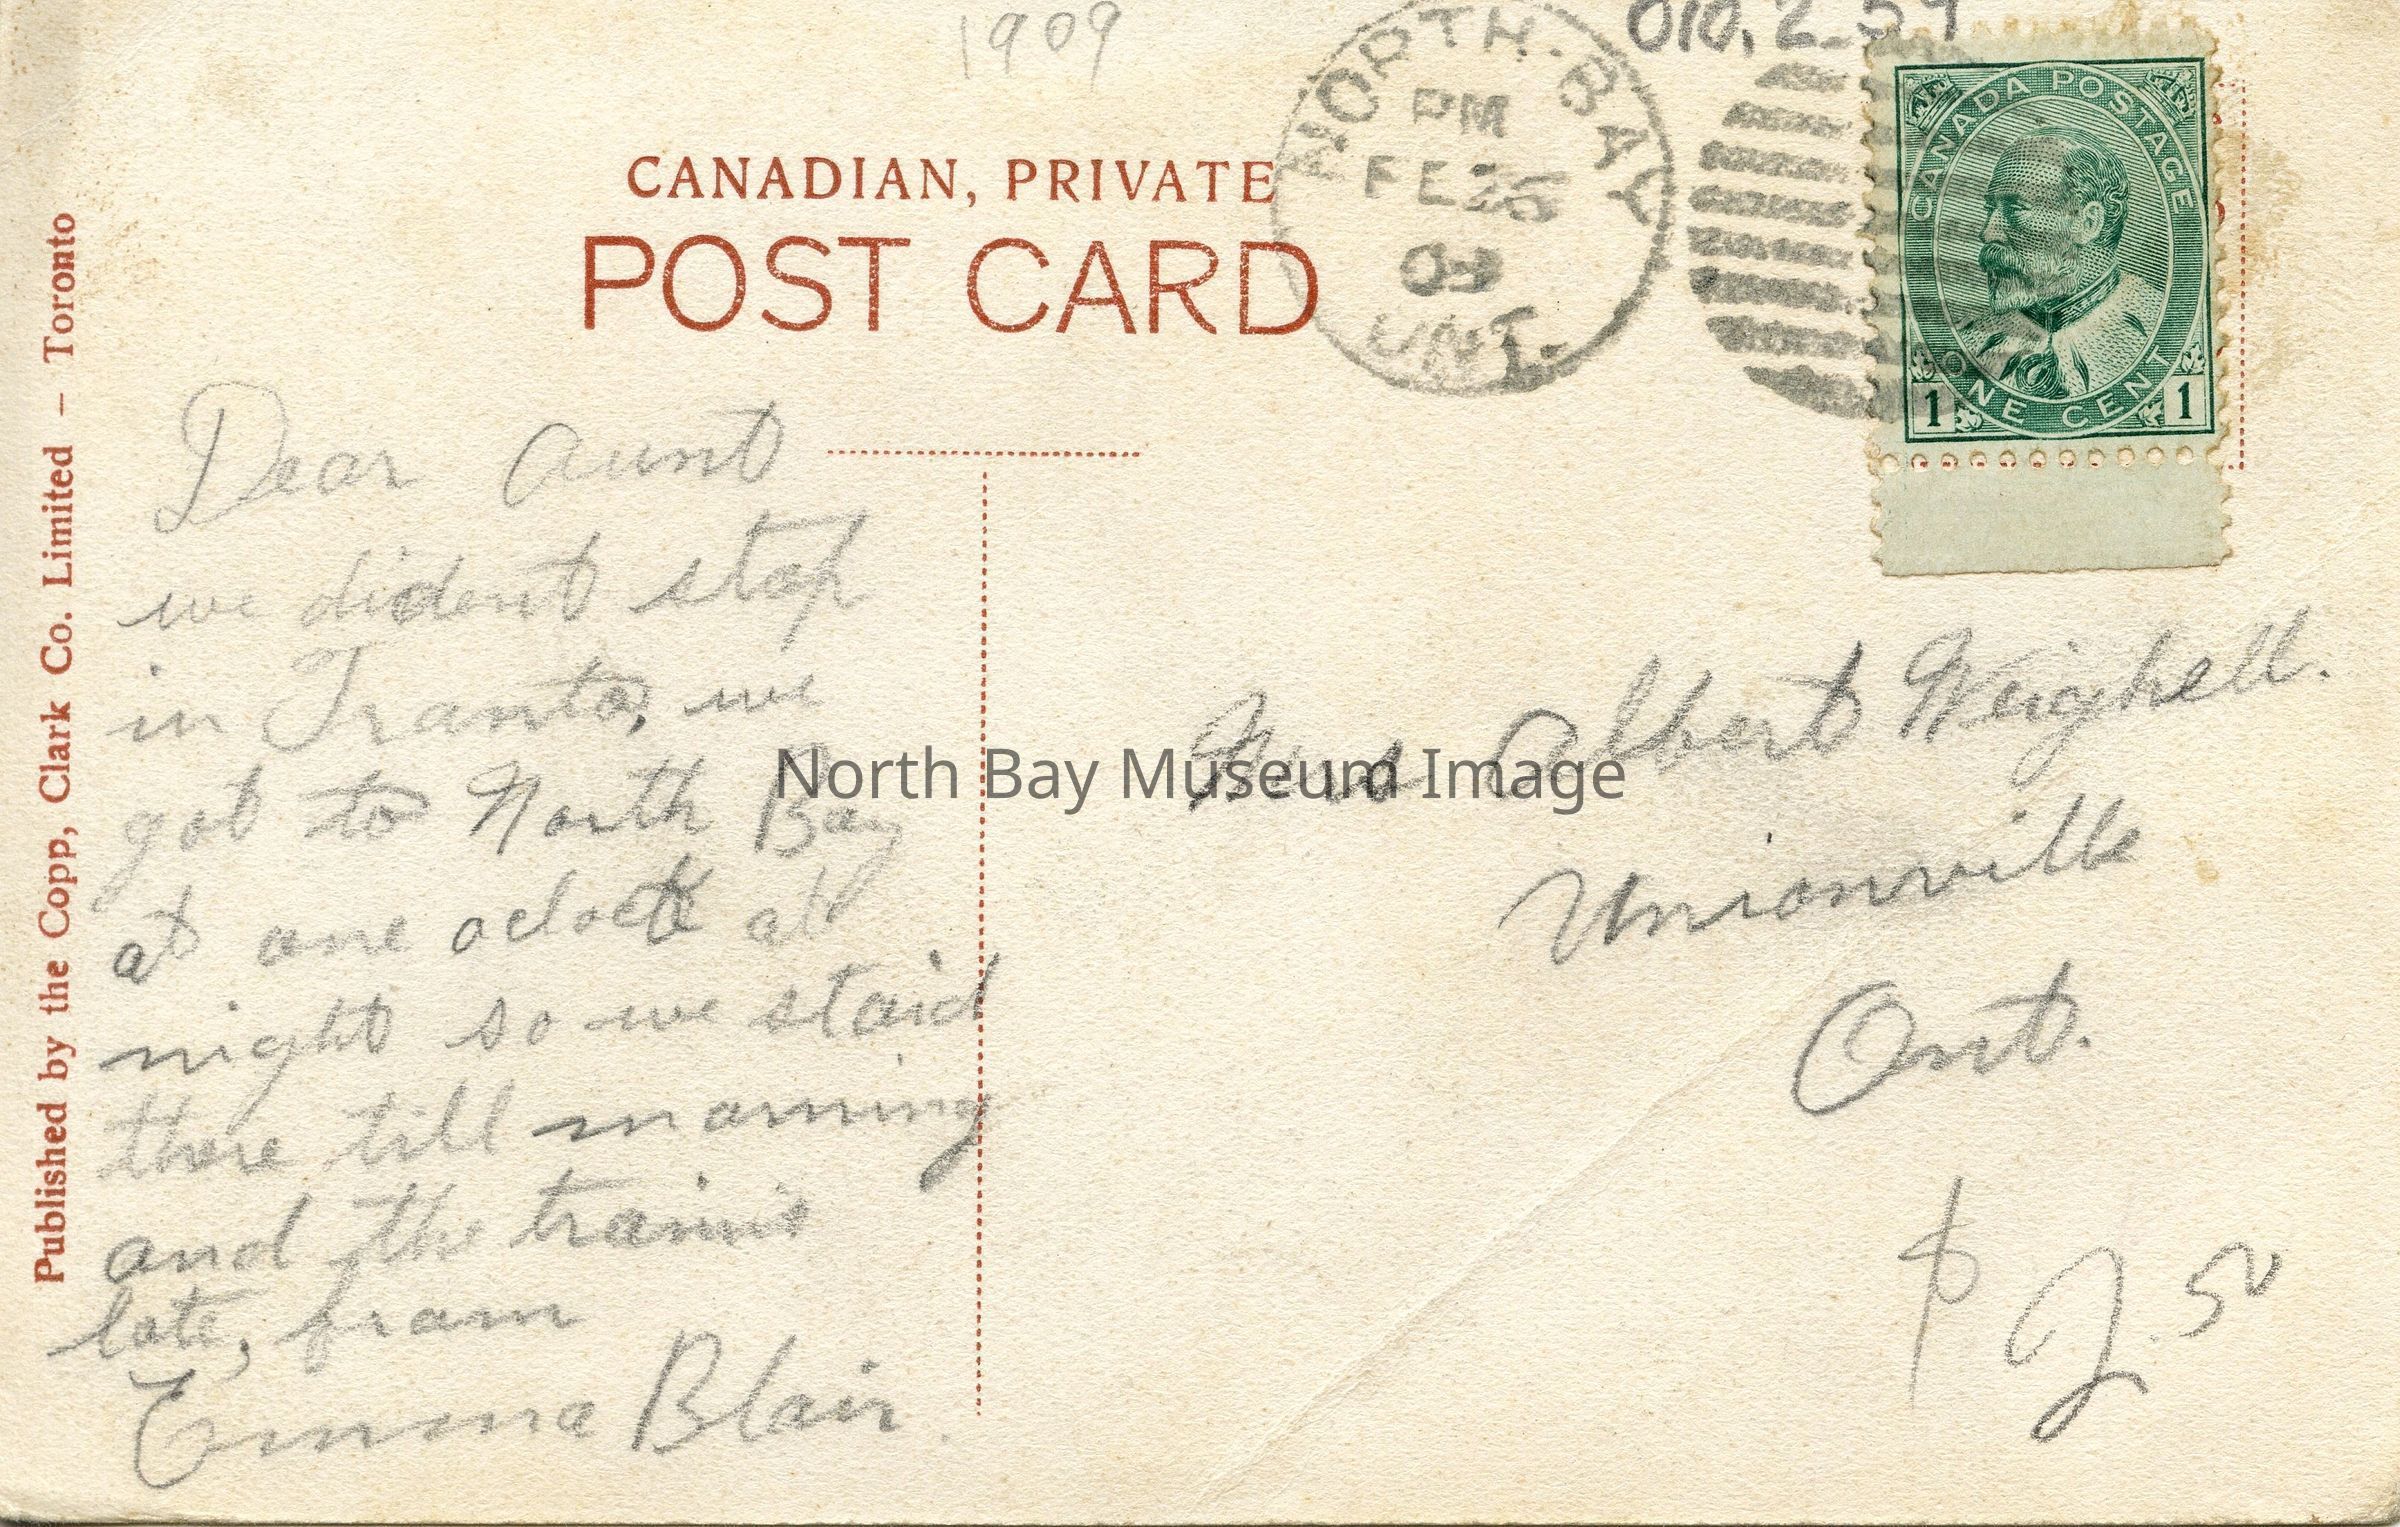 1909
010.2.59
NORTH-BAY
PM
FE 26
09
ONT.
CANADA POSTAGE
ONE CENT
1 1
CANADIAN, PRIVATE
POST CARD
Published by the Copp, Clark Co. Limited – Toronto
Dear Aunt
we dident stop
in Tranto, we
got to North Bay
at one oclock at
night so we staid
there till morning
and the train is
late, from
Emma Blair.
North Bay Museum Image
Mrs Albert Weighell.
Unionville
Ont.